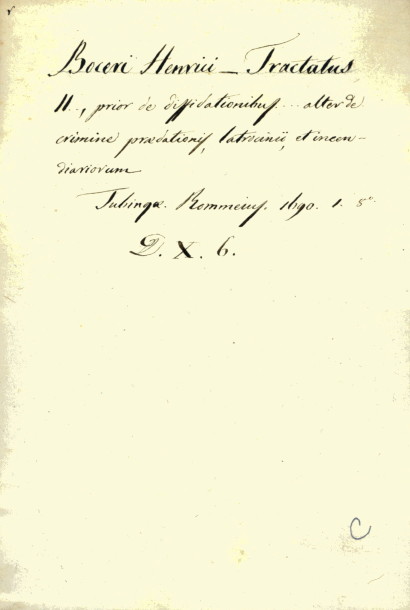 Boceri Henrici — Tractatus
II., prior de diffidationibus ... alter de
crimine prædationis, latrocinii, et incen-
diariorum
Tubingæ. Rommeius. 1690. 1. 8°.
D. X. 6.
C